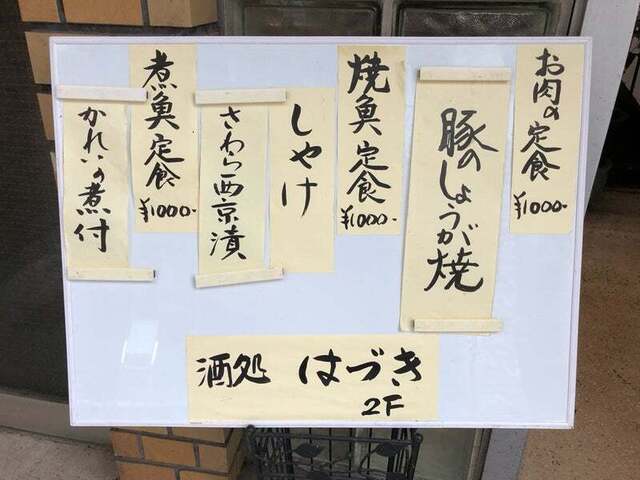 お肉の定食
¥1000-
豚のしょうが焼
焼魚定食
¥1000-
しゃけ
さわら西京漬
煮魚定食
¥1000-
かれいの煮付
酒処 はづき
2F